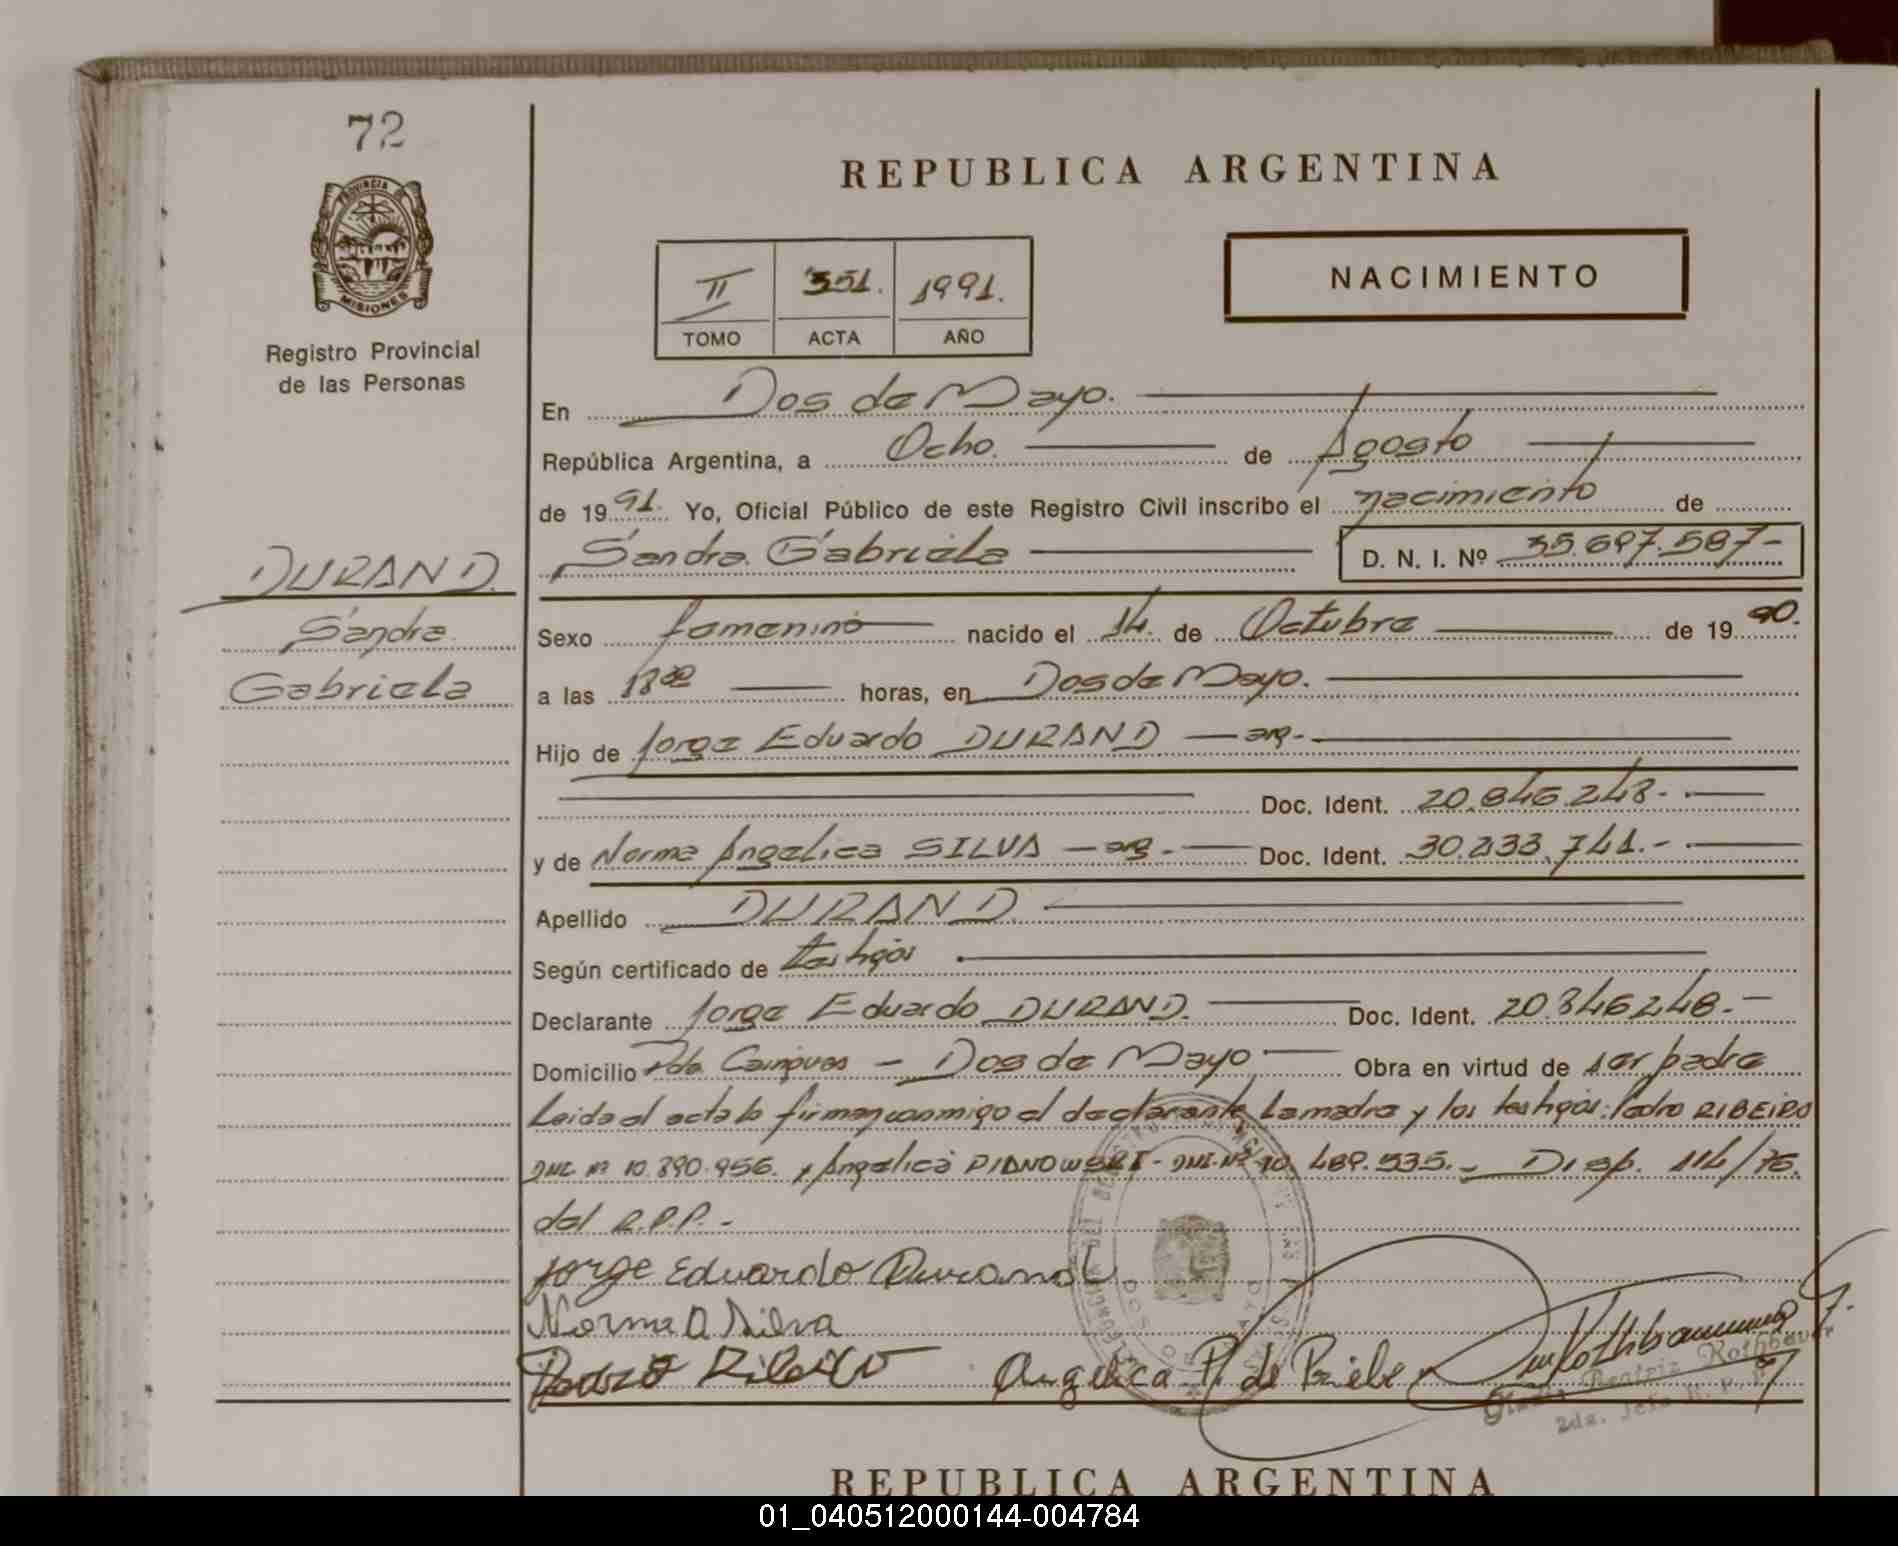 72
PROVINCIA
MISIONES
Registro Provincial
de las Personas
DURAND.
Sandra
Gabriela
REPUBLICA ARGENTINA
II 351. 1991.
TOMO ACTA AÑO
NACIMIENTO
En Dos de Mayo.
República Argentina, a Ocho. de Agosto
de 19 91. Yo, Oficial Público de este Registro Civil inscribo el nacimiento de
Sandra Gabriela D. N. I. Nº 35.697.587-
Sexo femenino nacido el 14. de Octubre de 19 90.
a las 18 horas, en Dos de Mayo.
Hijo de Jorge Eduardo DURAND — arg-
Doc. Ident. 20.846.248-
y de Norma Angelica SILVA — arg- Doc. Ident. 30.233.741.-
Apellido DURAND
Según certificado de testigos
Declarante Jorge Eduardo DURAND. Doc. Ident. 20.846.248.-
Domicilio Pda. — Dos de Mayo Obra en virtud de ser padre
Leida el acta la firman conmigo el declarante, la madre y los testigos: Pedro RIBEIRO
DNI Nº 10.890.956. y Angelica DNI-Nº 10.489.535.- Disp. 114/75.
del R.P.P.-
Jorge Eduardo Durand
Norma A Silva
Pedro Ribeiro Angelica P. de Priebe Rothbauer
Beatriz Rothbauer
2da. Jefe
DOS DE MAYO
REPUBLICA ARGENTINA
01_040512000144-004784